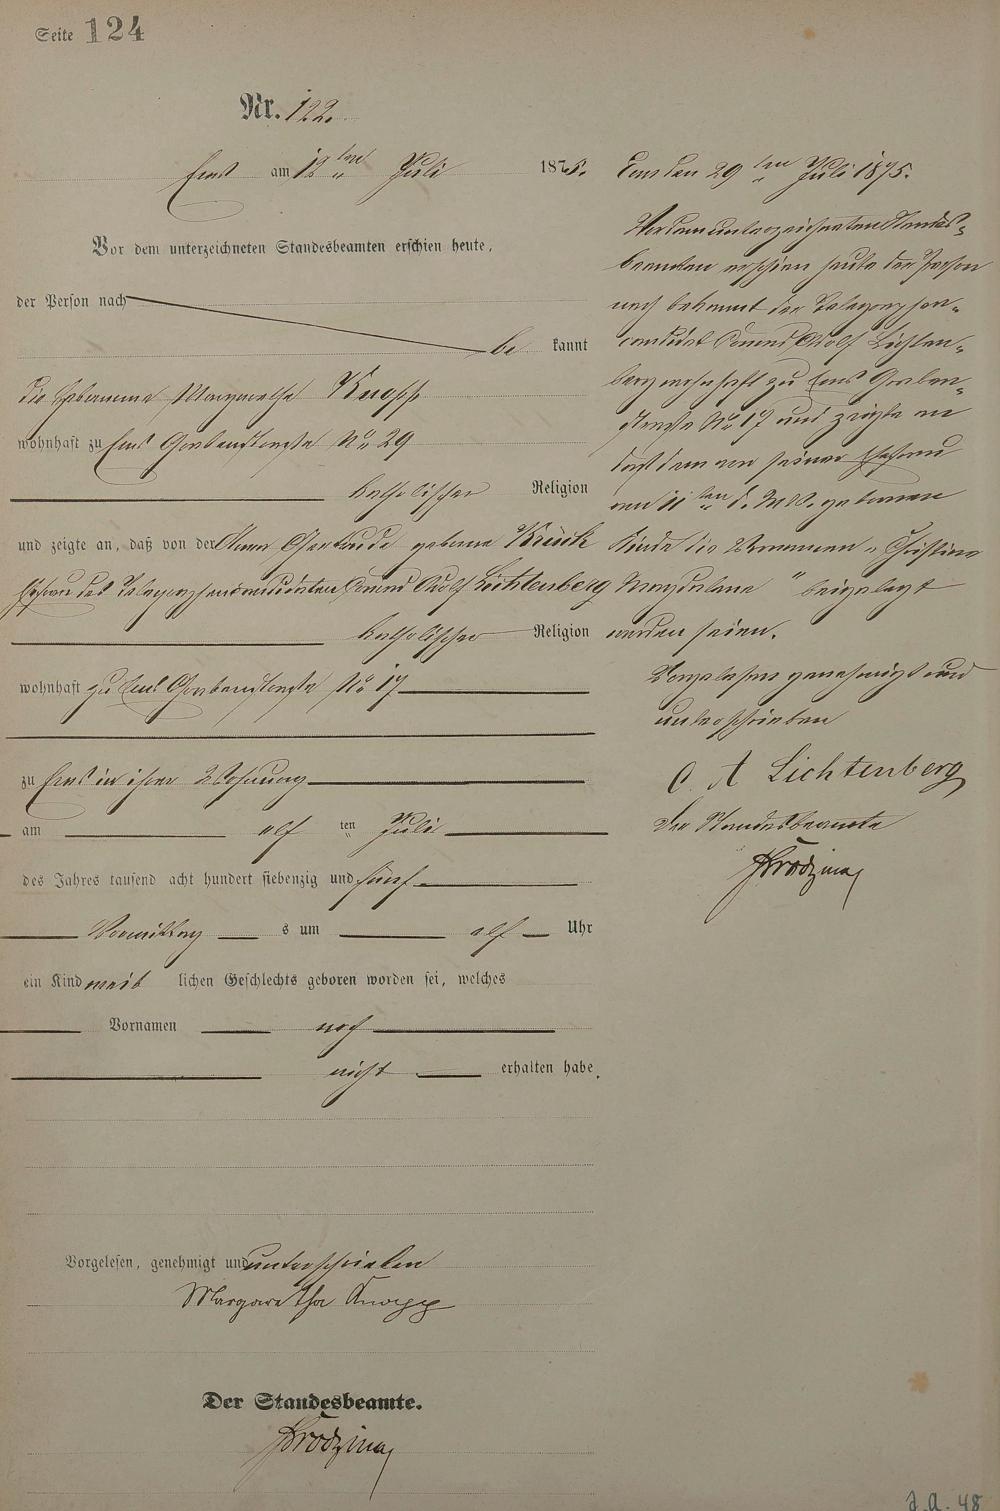 Seite 124
Nr. 122.
Ems am 12ten Juli 1875.
Vor dem unterzeichneten Standesbeamten erschien heute,
der Person nach
be kannt
die Hebamme Margarethe Knopp
wohnhaft zu Ems Grabenstraße No. 29
katholischer Religion
und zeigte an, daß von der Anna Gertrude geborne Krück
Ehefrau des Telegraphencandidaten Conrad Adolf Lichtenberg
katholischer Religion
wohnhaft zu Ems Grabenstraße No 17
zu Ems in ihrer Wohnung
am elf ten Juli
des Jahres tausend acht hundert siebenzig und fünf
Vormittag s um elf Uhr
ein Kind weib lichen Geschlechts geboren worden sei, welches
Vornamen noch
nicht erhalten habe.
Vorgelesen, genehmigt und unterschrieben
Margaretha Knopp
Der Standesbeamte.
Ems den 29ten Juli 1875.
Vor dem unterzeichneten Standes-
beamten erschien heute der Person
nach bekannt der Telegraphen-
candidat Conrad Adolf Lichten-
berg wohnhaft zu Ems Graben-
straße No. 17 und zeigte an
daß dem von seiner Ehefrau
am 11ten d. Mts. geborenen
Kinde die Vornamen "Christine
Magdalena" beigelegt
worden seien.
Vorgelesen genehmigt und
unterschrieben
C. A Lichtenberg
Der Standesbeamte
J. A. 48